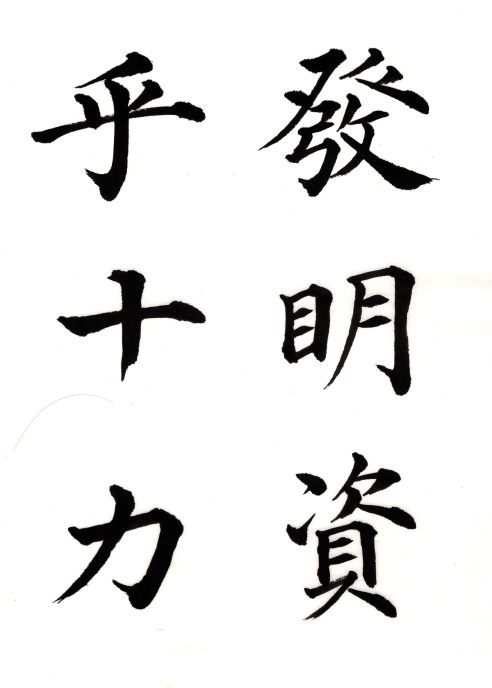 發明資
乎十力